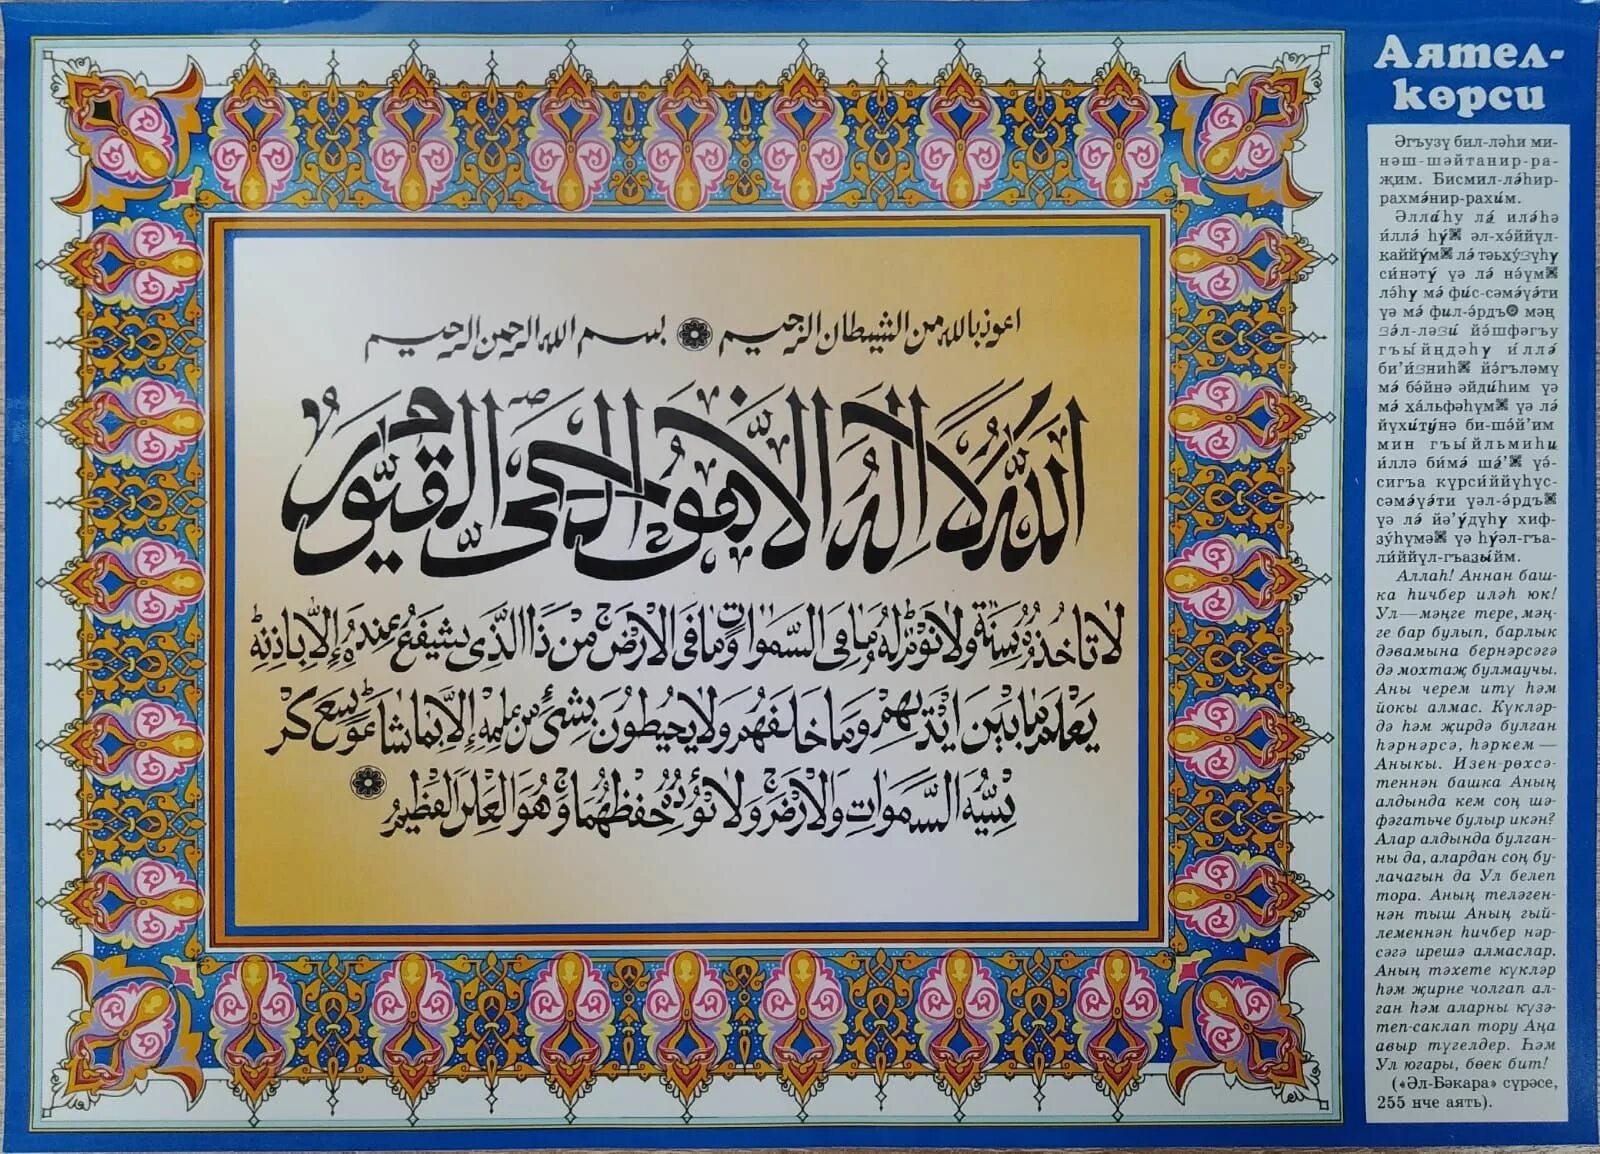 اعوذ بالله من الشيطان الرجيم بسم الله الرحمن الرحيم
اَللهُ لَا اِلٰهَ اِلَّا هُوَ اَلْحَىُّ الْقَيُّومُ
لَا تَاْخُذُهُ سِنَةٌ وَلَا نَوْمٌ لَهُ مَا فِى السَّمٰوَاتِ وَمَا فِى الْاَرْضِ مَنْ ذَا الَّذِى يَشْفَعُ عِنْدَهُ اِلَّا بِاِذْنِهِ
يَعْلَمُ مَا بَيْنَ اَيْدِيهِمْ وَمَا خَلْفَهُمْ وَلَا يُحِيطُونَ بِشَىْءٍ مِنْ عِلْمِهِ اِلَّا بِمَا شَاءَ وَسِعَ كُرْ
سِيُّهُ السَّمٰوَاتِ وَالْاَرْضَ وَلَا يَؤُدُهُ حِفْظُهُمَا وَهُوَ الْعَلِىُّ الْعَظِيمُ
Аятел-
көрси
Әгъузү бил-ләһи ми-
нәш-шәйтанир-ра-
җим. Бисмил-лә́һир-
рахмә́нир-рахи́м.
Әлла́һу лә́ илә́һә
и́ллә́ һу́ әл-хә́ййүл-
каййу́м лә́ тәьху́зүһу
си́нәтү́ үә лә́ нә́үм
лә́һу мә́ фи́с-сәмә́үә́ти
үә мә́ фил-ә́рдъ мәң
зә́л-ләзи́ йә́шфәгъу
гъы́йңдәһу и́ллә́
би’и́зниһ йә́гъләмү
мә́ бә́йнә әйди́һим үә
мә́ ҳә́льфәһүм үә лә́
йүхи́ту́нә би-шә́й’им
мин гъы́йльмиһи
и́ллә би́мә́ шә́’ үә́-
сигъа күрси́ййүһүс-
сәмә́үә́ти үәл-ә́рдъ
үә лә́ йә’у́дүһу хиф-
зу́һүмә́ үә һу́әл-гъа-
ли́ййүл-гъазы́йм.
Аллаһ! Аннан баш-
ка һичбер иләһ юк!
Ул — мәңге тере, мәң-
ге бар булып, барлык
дәвамына бернәрсәгә
дә мохтаҗ булмаучы.
Аны черем итү һәм
йокы алмас. Күкләр-
дә һәм җирдә булган
һәрнәрсә, һәркем —
Аныкы. Изен-рөхсә-
теннән башка Аның
алдында кем соң шә-
фәгатьче булыр икән?
Алар алдында булган-
ны да, алардан соң бу-
лачагын да Ул белеп
тора. Аның теләген-
нән тыш Аның гый-
леменнән һичбер нәр-
сәгә ирешә алмаслар.
Аның тәхете күкләр
һәм җирне чолгап ал-
ган һәм аларны күзә-
теп-саклап тору Аңа
авыр түгелдер. Һәм
Ул югары, бөек бит!
(«Әл-Бәкара» сүрәсе,
255 нче аять).